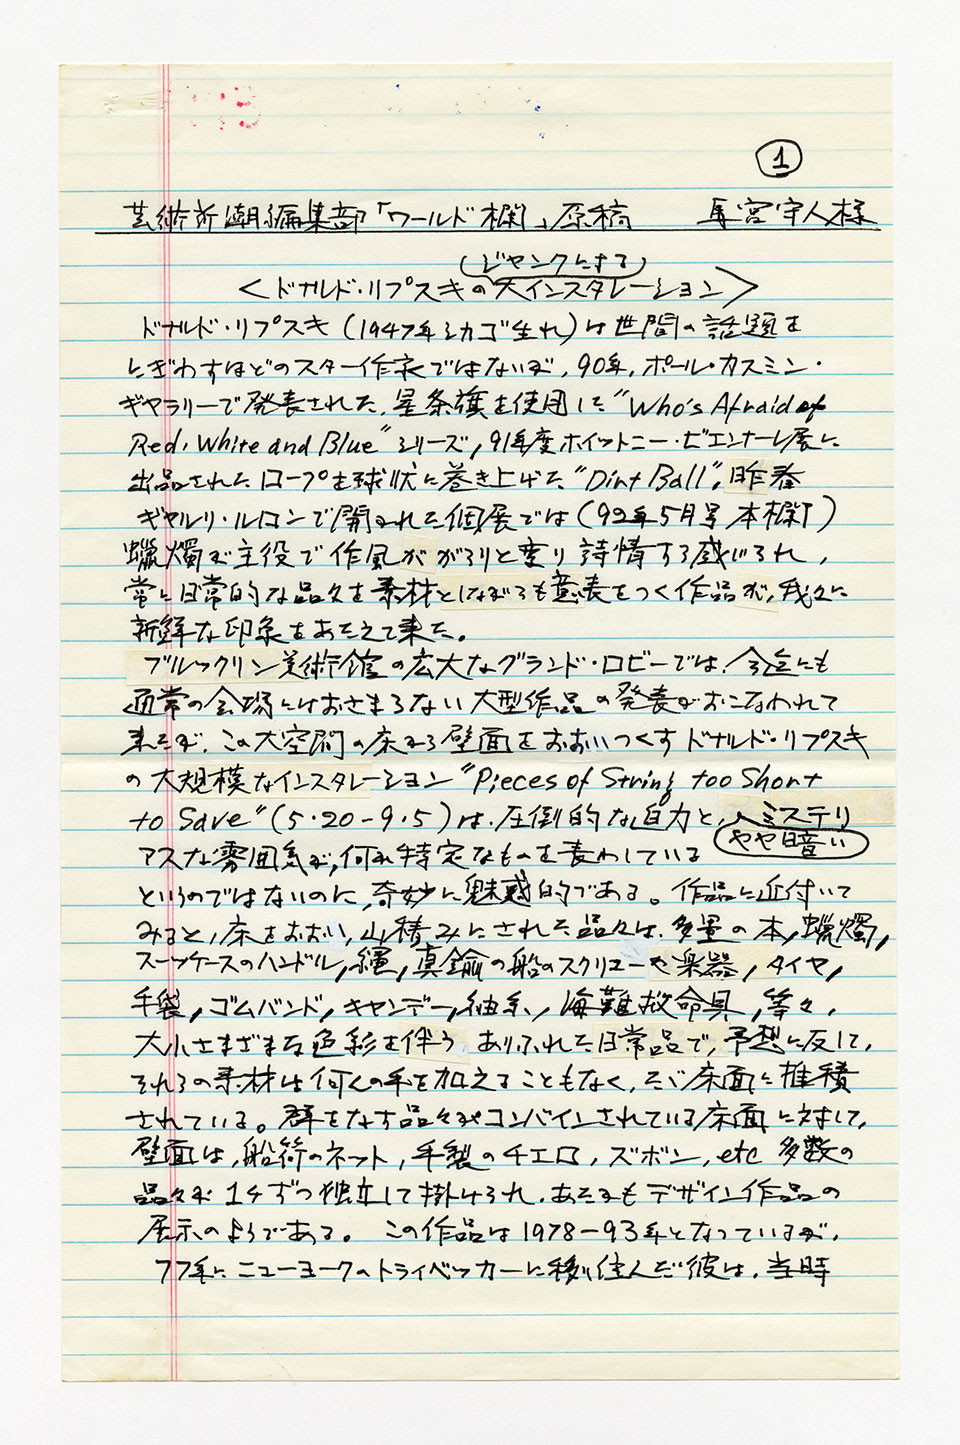 1
芸術新潮編集部「ワールド欄」原稿 馬宮守人様
(ジャンクにする)
<ドナルド・リプスキの大インスタレーション>
ドナルド・リプスキ(1947年シカゴ生れ)は世間の話題を
にぎわすほどのスター作家ではないが,90年,ポール・カスミン・
ギャラリーで発表された,星条旗を使用した“Who's Afraid of
Red, White and Blue”シリーズ,91年度ホイットニー・ビエンナーレ展に
出品されたロープを球状に巻き上げた“Dirt Ball”,昨春
ギャルリ・ルロンで開かれた個展では(92年5月号本欄)
蠟燭が主役で作風ががらりと変り詩情する感じられ,
常に日常的な品々を素材としながらも意表をつく作品が,我々に
新鮮な印象をあたえて来た。
ブルックリン美術館の広大なグランド・ロビーでは,今迄にも
通常の会場にはおさまらない大型作品の発表がおこなわれて
来たが,この大空間の床から壁面をおおいつくすドナルド・リプスキ
の大規模なインスタレーション“Pieces of String too Short
to Save”(5・20-9・5)は,圧倒的な迫力と,ミステリ
やや暗い
アスな雰囲気が,何か特定なものを表わしている
というのではないのに,奇妙に魅惑的である。作品に近付いて
みると,床をおおい,山積みにされた品々は,多量の本,蠟燭,
スーツケースのハンドル,縄,真鍮の船のスクリューや楽器,タイヤ,
手袋,ゴムバンド,キャンデー,紬糸,海難救命具,等々,
大小さまざまな色彩を伴うありふれた日常品で,予想に反して,
それらの素材は何んの手を加えることもなく,ただ床面に堆積
されている。群をなす品々がコンバインされている床面に対して,
壁面は,船荷のネット,手製のチェロ,ズボン,etc 多数の
品々が1ケずつ独立して掛けられ,あたかもデザイン作品の
展示のようである。 この作品は1978-93年となっているが,
77年にニューヨークのトライベッカーに移り住んだ彼は,当時